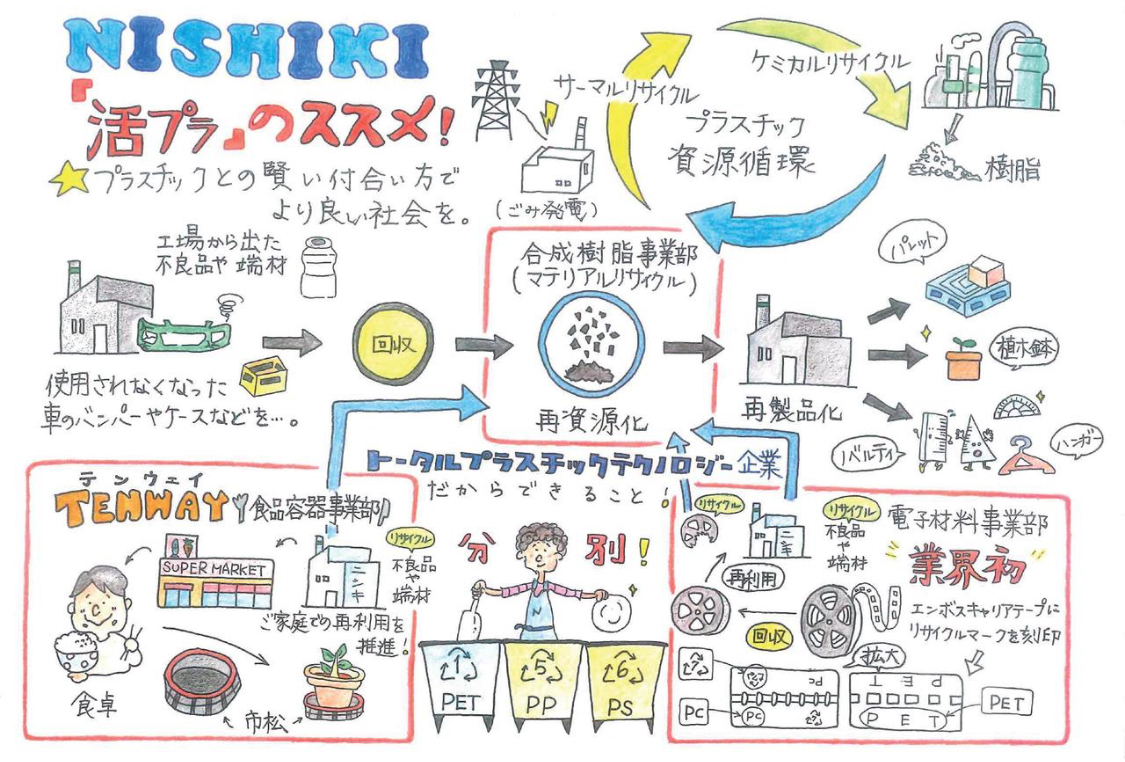 NISHIKI
『活プラ』のススメ!
プラスチックとの賢い付合い方で
より良い社会を。
サーマルリサイクル
ケミカルリサイクル
プラスチック
資源循環
(ごみ発電)
樹脂
工場から出た
不良品や端材
使用されなくなった
車のバンパーやケースなどを…。
回収
合成樹脂事業部
(マテリアルリサイクル)
再資源化
再製品化
パレット
植木鉢
ノベルティ
ハンガー
トータルプラスチックテクノロジー企業
だからできること!
テンウェイ
TENWAY
食品容器事業部
SUPER MARKET
ニシキ
リサイクル
不良品
や
端材
ご家庭での再利用を
推進!
食卓
市松
分別!
N
1
PET
5
PP
6
PS
電子材料事業部
業界初
エンボスキャリアテープに
リサイクルマークを刻印
リサイクル
ニシキ
リサイクル
不良品
や
端材
再利用
回収
拡大
7
PC
PC
PC
PET
PET
PET